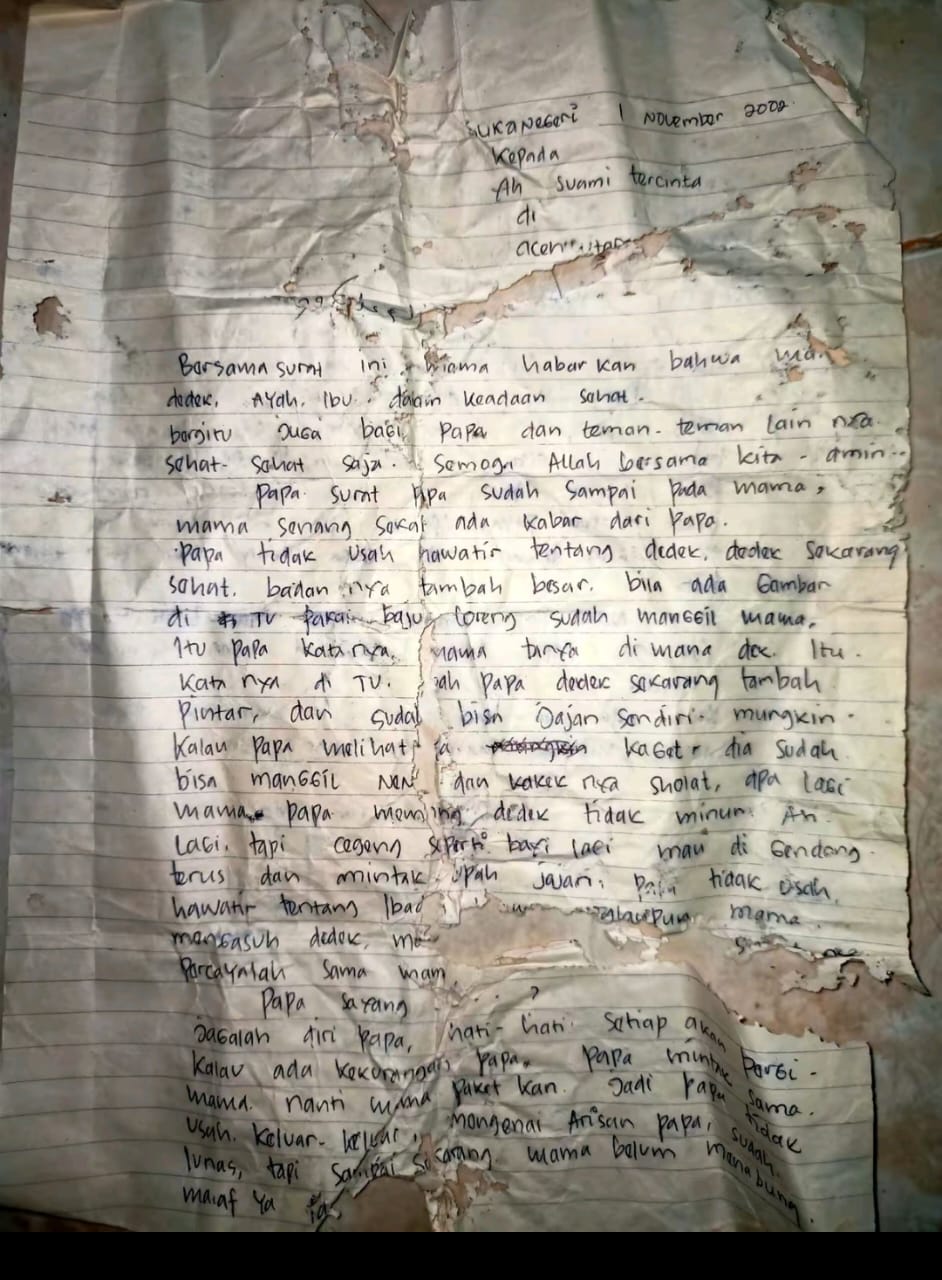 SUKANEGERI 1 NOVEMBER 2002.
Kepada
Ah suami tercinta
di
Bersama surat ini mama habar kan bahwa ma
dedek, Ayah, Ibu. dalam keadaan sehat.
bergitu Juga bagi papa dan teman-teman lain nya.
sehat-sehat saja. Semoga Allah bersama kita - amin..
papa. surat papa sudah sampai pada mama,
mama senang sekali ada kabar dari papa.
papa tidak usah hawatir tentang dedek, dedek sekarang
sehat. badan nya tambah besar. bila ada Gambar
di TV pakai baju loreng sudah manggil mama,
Itu papa kata nya. mama tanya di mana dek. Itu.
Kata nya di TV. papa dedek sekarang tambah
Pintar, dan sudah bisa Jajan sendiri. mungkin.
Kalau papa melihat kaget. dia sudah
bisa manggil NEN dan kakek nya sholat, apa lagi
mama. papa dedek tidak minum An
Lagi. tapi cegeng seperti bayi lagi mau di Gendong.
terus dan mintak upah Jajan. papa tidak usah,
hawatir tentang Ibad walaupun mama
mengasuh dedek, ma
Percayalah sama mam
Papa sayang ?
Jagalah diri papa, hati-hati setiap akan pergi -
Kalau ada kekurangan papa. papa mintak sama.
mama. nanti mama paket kan. Jadi papa tidak
usah. keluar-keluar, mengenai Arisan papa, sudah.
lunas, tapi sampai sekarang. mama belum menabung.
maaf ya